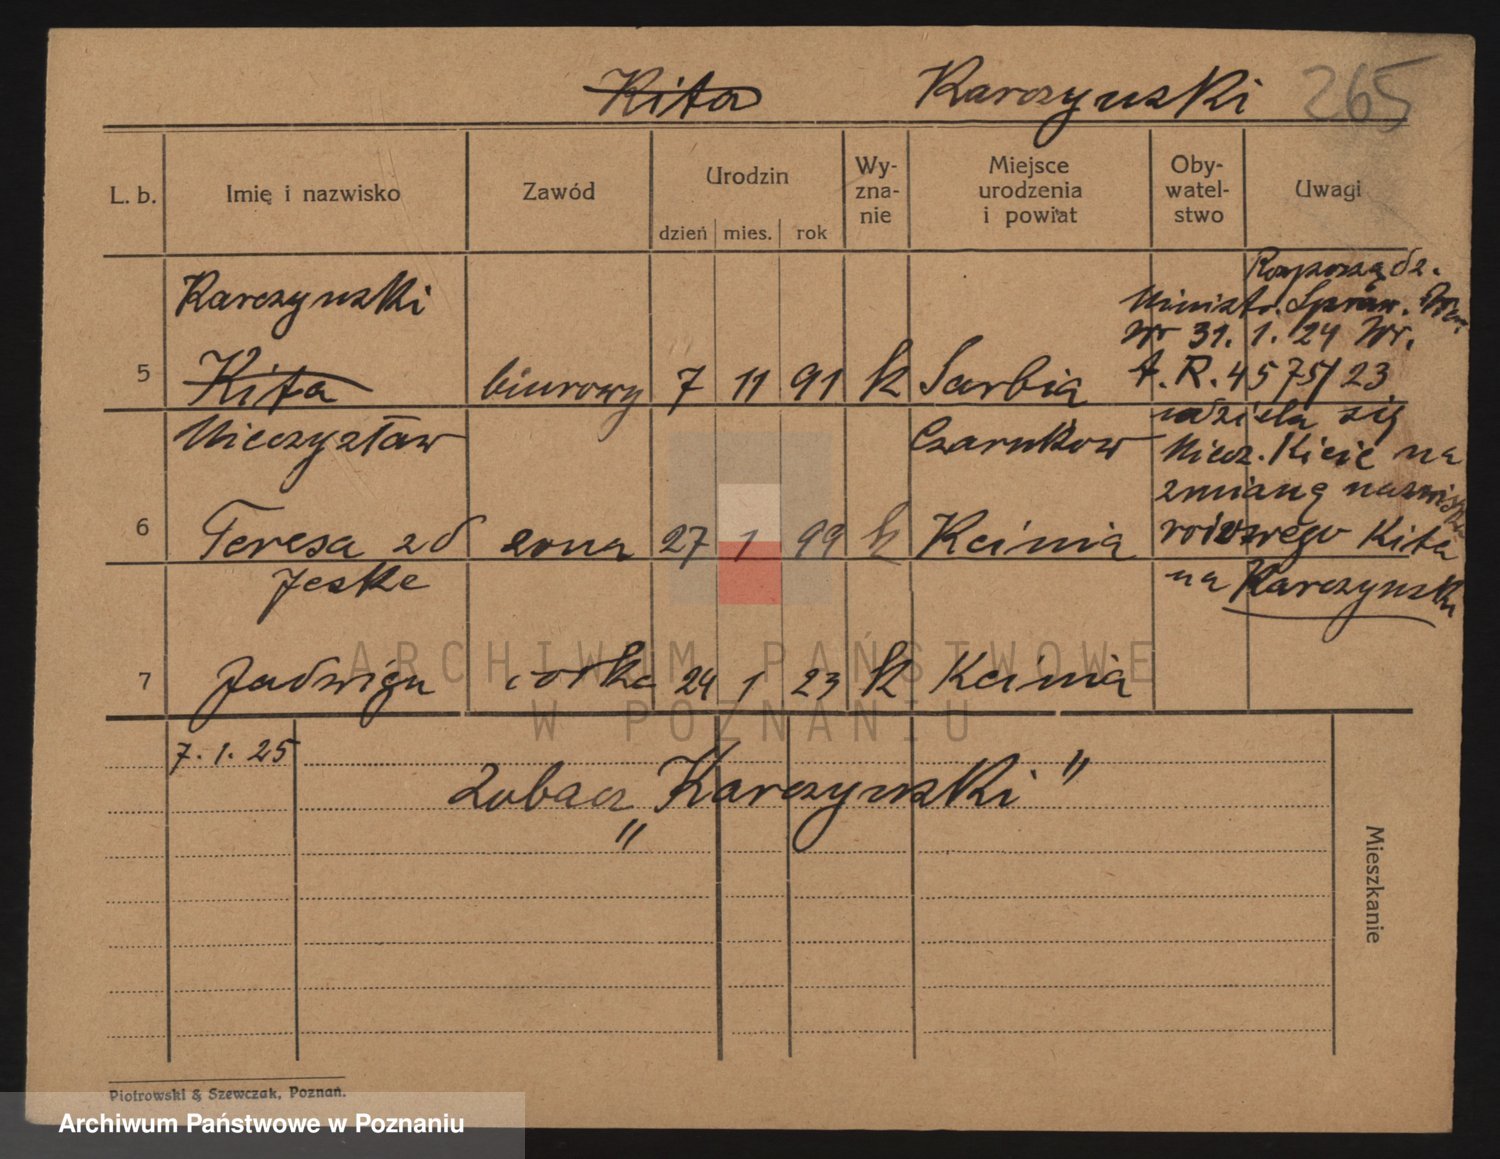 Kita Karczynski 265
L. b. Imię i nazwisko Zawód Urodzin dzień mies. rok Wy-zna-nie Miejsce urodzenia i powiat Oby-watel-stwo Uwagi
Karczynski
5 Kita biurowy 7 11 91 k Sarbia
Mieczysław Czarnkow
Rozporządz.
Ministr. Spraw. Wew.
31. 1. 24 Nr.
A. R. 4575/23
udziela się
Miecz. Kicie na
zmianę nazwiska
rodowego Kita
na Karczynski
6 Teresa zd żona 27 1 99 k Kcinia
Jeske
7 Jadwiga corka 24 1 23 k Kcinia
7. 1. 25
Zobacz „Karczynski"
"
Mieszkanie
ARCHIWUM PAŃSTWOWE
W POZNANIU
Piotrowski & Szewczak, Poznań.
Archiwum Państwowe w Poznaniu